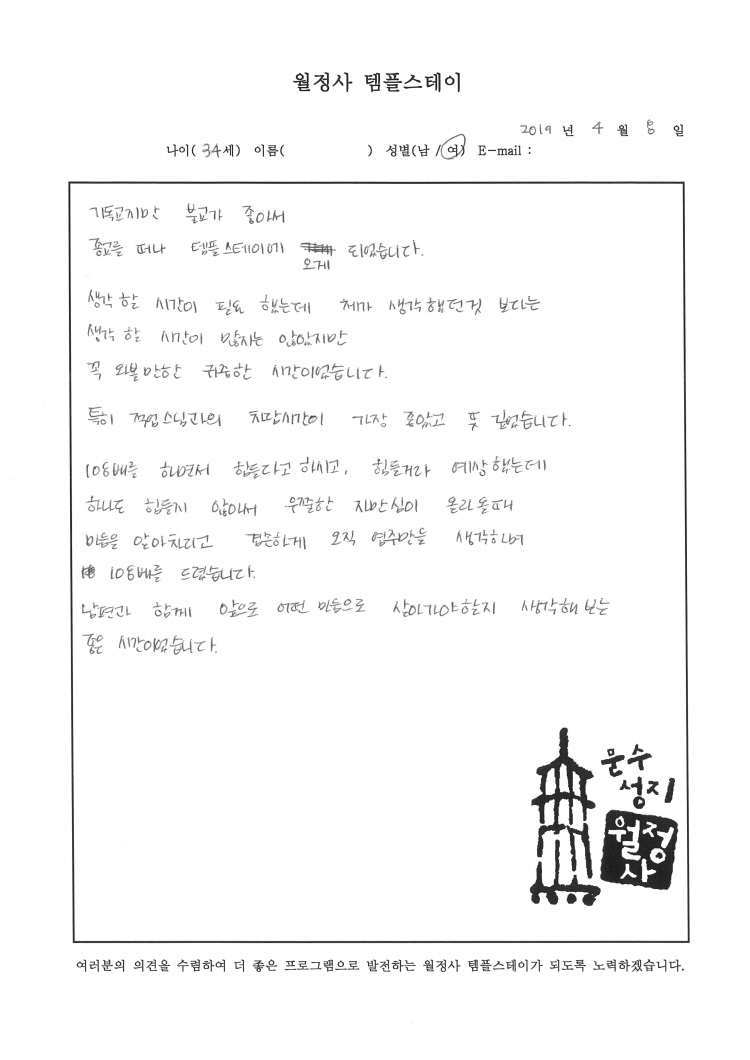 월정사 템플스테이
2019 년 4 월 8 일
나이( 34세) 이름( ) 성별(남 / 여) E-mail :
기독교지만 불교가 좋아서
종교를 떠나 템플스테이에 오게 되었습니다.
생각 할 시간이 필요 했는데 제가 생각했던것 보다는
생각 할 시간이 많지는 않았지만
꼭 와볼만한 귀중한 시간이었습니다.
특히 스님과의 차담시간이 가장 좋았고 뜻 깊었습니다.
108배를 하면서 힘들다고 하시고, 힘들거라 예상 했는데
하나도 힘들지 않아서 우쭐한 자만심이 올라올때
마음을 알아차리고 겸손하게 오직 염주만을 생각하며
108배를 드렸습니다.
남편과 함께 앞으로 어떤 마음으로 살아가야할지 생각해 보는
좋은 시간이었습니다.
문수
성지
월정
사
여러분의 의견을 수렴하여 더 좋은 프로그램으로 발전하는 월정사 템플스테이가 되도록 노력하겠습니다.